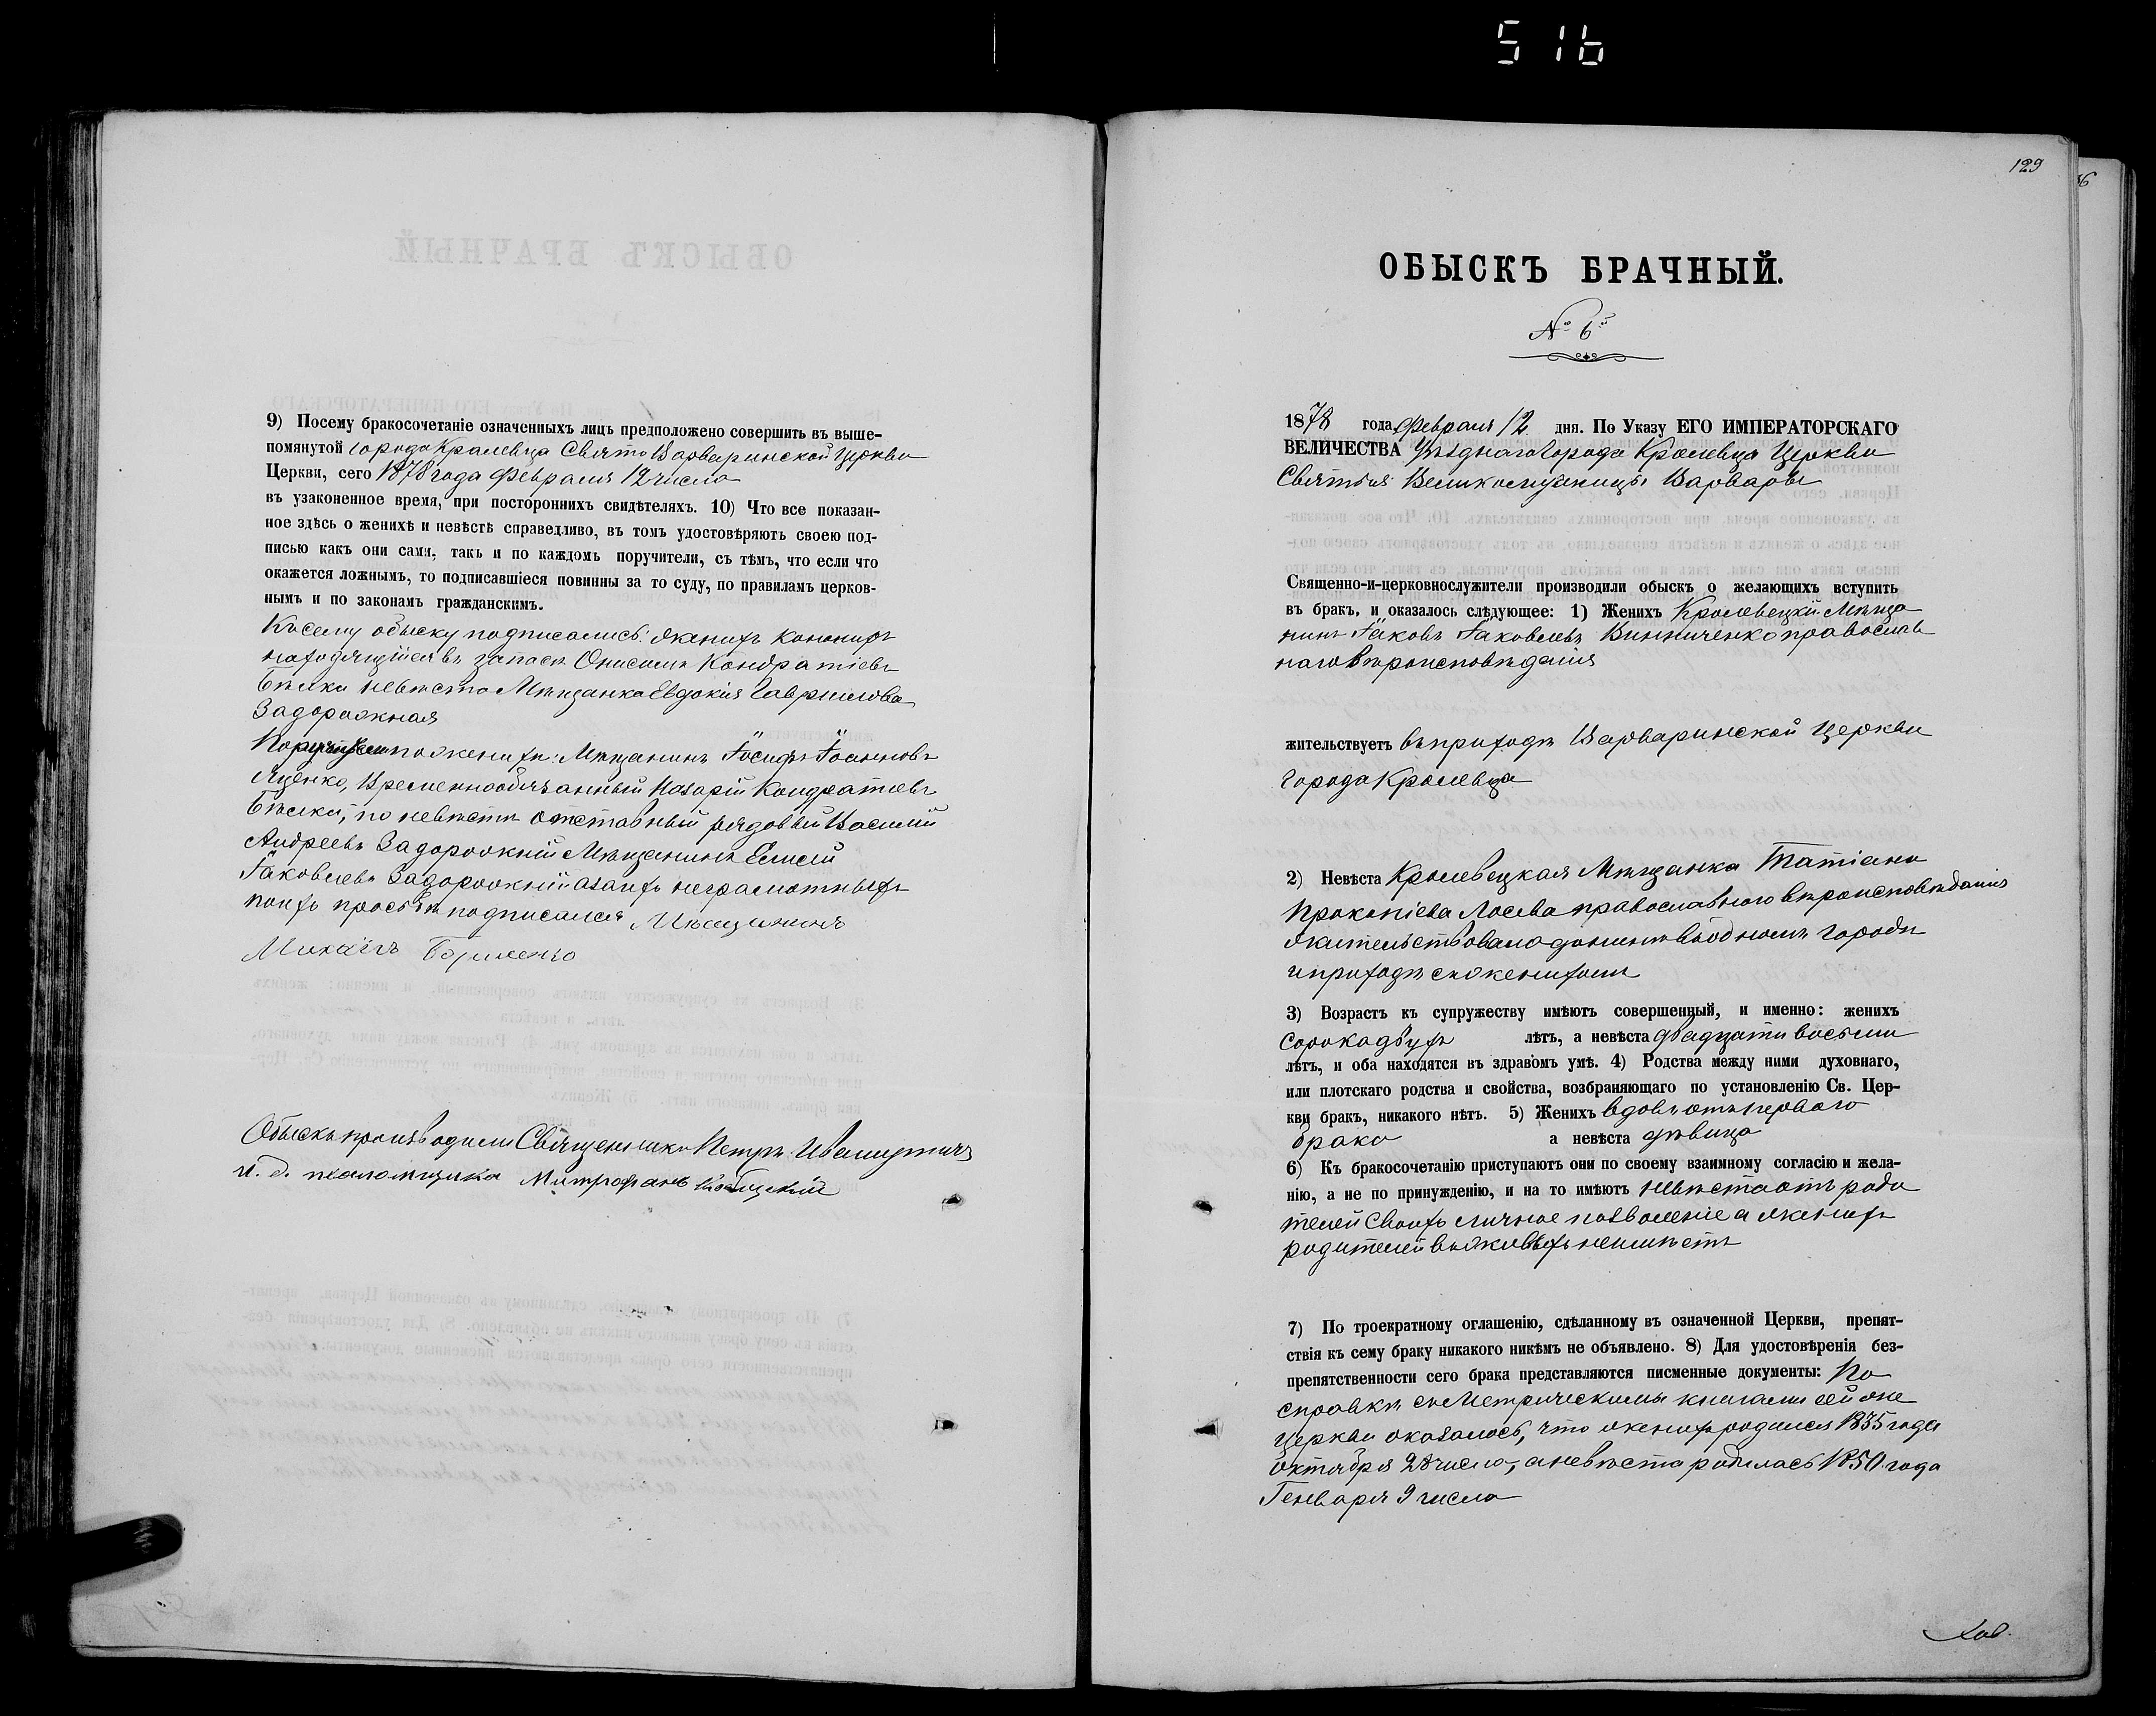 516
9) Посему бракосочетаніе означенныхъ лицъ предположено совершить въ выше-
помянутой города Кролевца Свято Варваринской Церкви
Церкви, сего 1878 года Февраля 12 числа
въ узаконенное время, при постороннихъ свидѣтеляхъ. 10) Что все показан-
ное здѣсь о женихѣ и невѣстѣ справедливо, въ томъ удостовѣряютъ своею под-
писью какъ они сами, такъ и по каждомъ поручители, съ тѣмъ, что если что
окажется ложнымъ, то подписавшіеся повинны за то суду, по правиламъ церков-
нымъ и по законамъ гражданскимъ.
Къ сему обыску подписались: женихъ канониръ
находящійся въ запасѣ Онисимъ Кондратіевъ
Бѣлка невѣста Мѣщанка Евдокія Гаврилова
Задорожная
Поручители по женихѣ: Мѣщанинъ Іосифъ Іоанновъ
Яценко, Временнообязанный Назарій Кондратіевъ
Бѣлка, по невѣстѣ отставный рядовый Василій
Андреевъ Задорожній Мѣщанинъ Елисей
Іаковлевъ Задорожній а за ихъ неграмотныхъ
по ихъ просьбѣ подписался Мѣщанинъ
Михаилъ
Обыскъ производили Священникъ Петръ
и. д. псаломщика Митрофанъ
129
ОБЫСКЪ БРАЧНЫЙ.
№ 6й
1878 года Февраля 12 дня. По Указу ЕГО ИМПЕРАТОРСКАГО
ВЕЛИЧЕСТВА Уѣзднаго города Кролевца Церкви
Святыя Великомученицы Варвары
Священно-и-церковнослужители производили обыскъ о желающихъ вступить
въ бракъ, и оказалось слѣдующее: 1) Женихъ Кролевецкій Мѣща
нинъ Іаковъ Іаковлевъ Винниченко православ
наго вѣроисповѣданія
жительствуетъ въ приходѣ Варваринской Церкви
города Кролевца
2) Невѣста Кролевецкая Мѣщанка Татіана
Прокопіева Лосева православного вѣроисповѣданія
жительствовала донынѣ въ одномъ городѣ
и приходѣ съ женихомъ
3) Возрастъ къ супружеству имѣютъ совершенный, и именно: женихъ
сорока двухъ лѣтъ, а невѣста двадцати восьми
лѣтъ, и оба находятся въ здравомъ умѣ. 4) Родства между ними духовнаго,
или плотскаго родства и свойства, возбраняющаго по установленію Св. Цер-
кви бракъ, никакого нѣтъ. 5) Женихъ вдовъ отъ первого
брака а невѣста дѣвица
6) Къ бракосочетанію приступаютъ они по своему взаимному согласію и жела-
нію, а не по принужденію, и на то имѣютъ невѣста отъ роди
телей своихъ личное позволеніе а женихъ
родителей въ живыхъ неимѣетъ
7) По троекратному оглашенію, сдѣланному въ означенной Церкви, препят-
ствія къ сему браку никакого никѣмъ не объявлено. 8) Для удостовѣренія без-
препятственности сего брака представляются писменные документы: По
справкѣ съ Метрическими книгами сей же
церкви оказалось, что женихъ родился 1835 года
Октября 28 числа, а невѣста родилась 1850 года
Генваря 9 числа